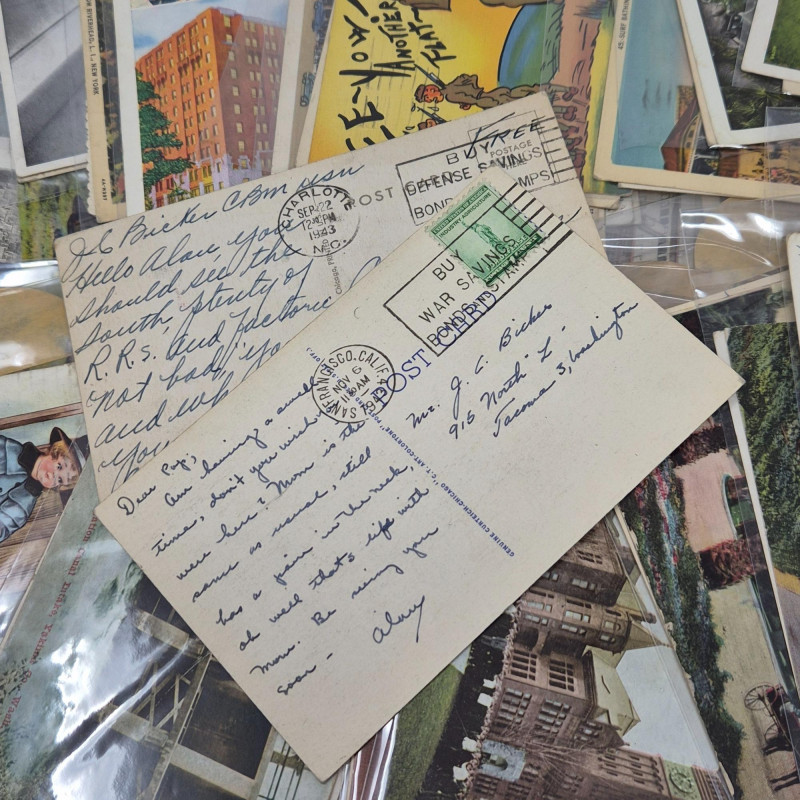 RIVERHEAD, L. I., NEW YORK
ANOTHER
FLAT
J C Bicker CBM USN
Hello Alan, you
should see the
South, plenty of
R.R.s. and factories
"not bad," Yo
and wh
You
CHARLOTTE
SEP 22
1943
N.C.
POST CARD
FREE
BUY
DEFENSE SAVINGS
BONDS STAMPS
POSTAGE
Dear Pop,
Am having a swell
time, don't you wish
were here? Mom is the
same as usual, still
has a pain in the neck,
oh well that's life with
mom. Be seeing you
soon -
Alan
SAN FRANCISCO, CALIF.
NOV 6
11 AM
1943
INDUSTRY AGRICULTURE
BUY
WAR SAVINGS
BONDS AND STAMPS
POST CARD
Mr. J. C. Bicker
915 North "L"
Tacoma 3, Washington
GENUINE CURTEICH-CHICAGO "C.T. ART-COLORTONE" POST CARD